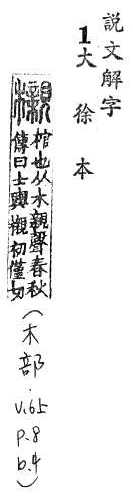 説文解字
1大徐本
櫬 棺也从木親聲春秋
傳曰士輿櫬初僅切
(木部.
V.6上
p.8
b.4)